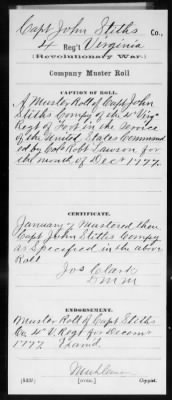 Capt John Stiths Co.,
4 Reg't Virginia
(Revolutionary War.)
Company Muster Roll
CAPTION OF ROLL.
A Muster Roll of Capt John
Stiths Compy of the 4" Virg
Regt of Foot in the Service
of the United States Command
ed by Colo Robt Lawson for
the month of Decr 1777.
CERTIFICATE.
January 7 Mustered then
Capt John Stiths Compy
as Specified in the above
Roll
Jos Clark
D M M
ENDORSEMENT.
Muster Roll of Capt Stiths
Co. 4" V. Regt for Decemr
1777 Examd.
(525)
[OVER.]
Copyist.